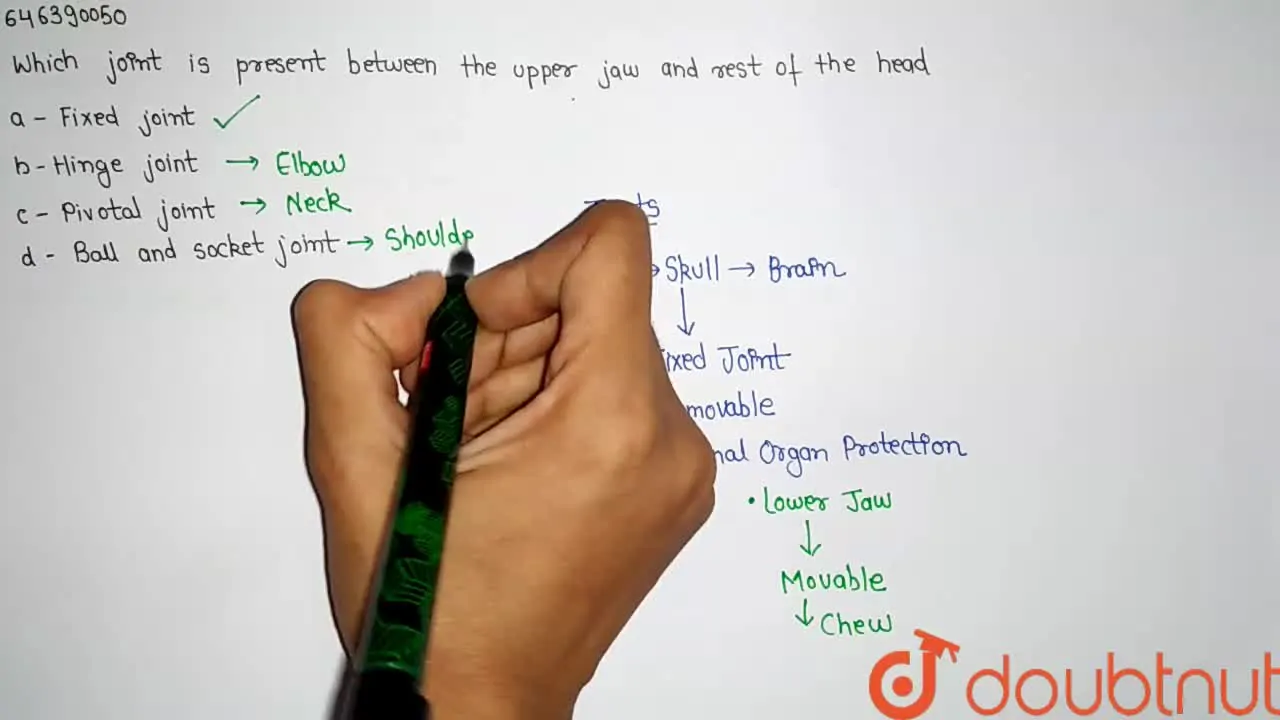 646390050
Which joint is present between the upper jaw and rest of the head
a - Fixed joint ✓
b - Hinge joint → Elbow
c - Pivotal joint → Neck
d - Ball and socket joint → Shoulde
Skull → Brain
↓
ixed Joint
movable
nal Organ Protection
• Lower Jaw
↓
Movable
↓ Chew
doubtnut